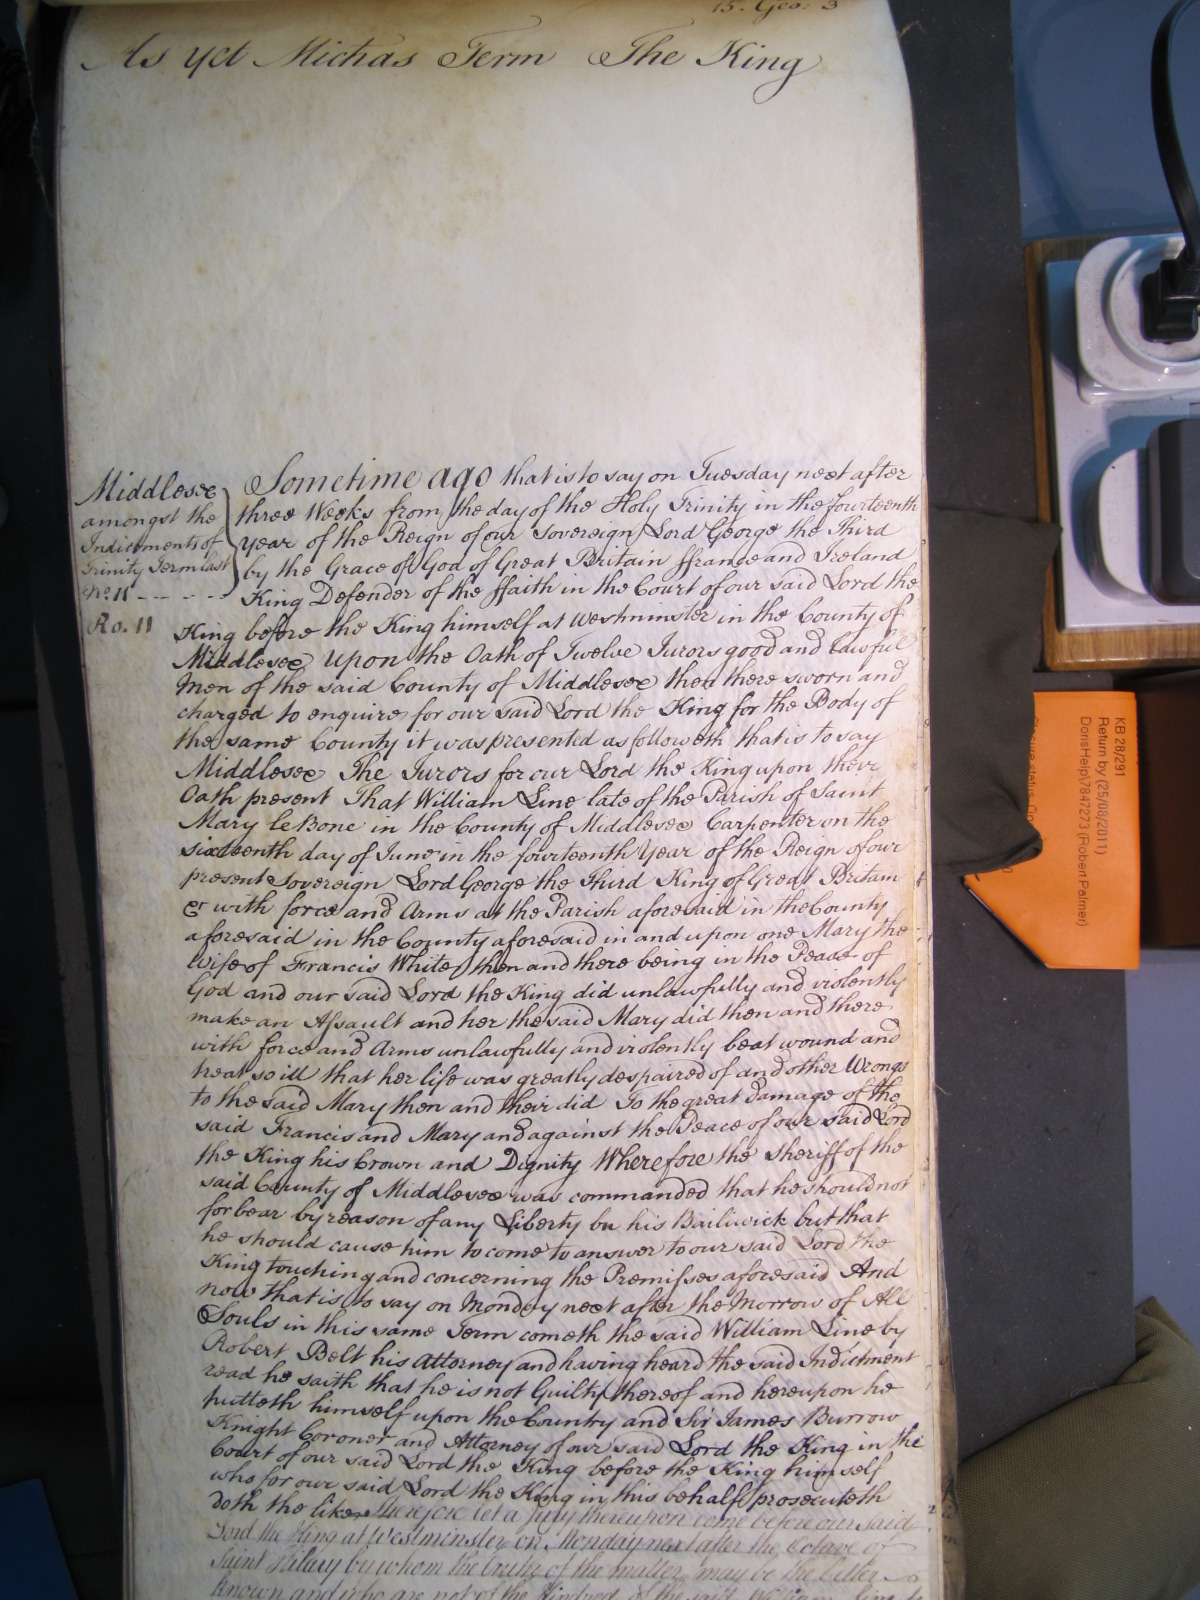 15. Geo: 3
As yet Michas Term The King
Middlesex
amongst the
Indictments of
Trinity Term last
No. 11 - - - -
Ro. 11
Sometime ago that is to say on Tuesday next after
three Weeks from the day of the Holy Trinity in the fourteenth
year of the Reign of our Sovereign Lord George the Third
by the Grace of God of Great Britain ffrance and Ireland
King Defender of the ffaith in the Court of our said Lord the
King before the King himself at Westminster in the County of
Middlesex upon the Oath of Twelve Jurors good and lawful
Men of the said County of Middlesex then there sworn and
charged to enquire for our said Lord the King for the Body of
the same County it was presented as followeth that is to say
Middlesex The Jurors for our Lord the King upon their
Oath present That William Line late of the Parish of Saint
Mary le Bone in the County of Middlesex Carpenter on the
sixteenth day of June in the fourteenth Year of the Reign of our
present Sovereign Lord George the Third King of Great Britain
&c with force and Arms at the Parish aforesaid in the County
aforesaid in the County aforesaid in and upon one Mary the
Wife of Francis White then and there being in the Peace of
God and our said Lord the King did unlawfully and violently
make an Assault and her the said Mary did then and there
with force and Arms unlawfully and violently beat wound and
treat so ill that her life was greatly despaired of and other Wrongs
to the said Mary then and their did To the great Damage of the
said Francis and Mary and against the Peace of our said Lord
the King his Crown and Dignity Wherefore the Sheriff of the
said County of Middlesex was commanded that he should not
forbear by reason of any Liberty bu his Bailiwick but that
he should cause him to come to answer to our said Lord the
King touching and concerning the Premisses aforesaid And
now that is to say on Monday next after the Morrow of All
Souls in this same Term cometh the said William Line by
Robert Belt his Attorney and having heard the said Indictment
read he saith that he is not Guilty thereof and hereupon he
putteth himself upon the Country and Sir James Burrow
Knight Coroner and Attorney of our said Lord the King in the
Court of our said Lord the King before the King himself
who for our said Lord the King in this behalf prosecuteth
doth the like Therefore let a Jury thereupon come before our said
Lord the King at Westminster on Monday next after the Octave of
Saint Hilary by whom the truth of the matter may be the better
known and who are not of the Kindred of the said William Line
KB 28/291
Return by (25/08/2011)
DorisHelp\7847273 (Robert Palmer)